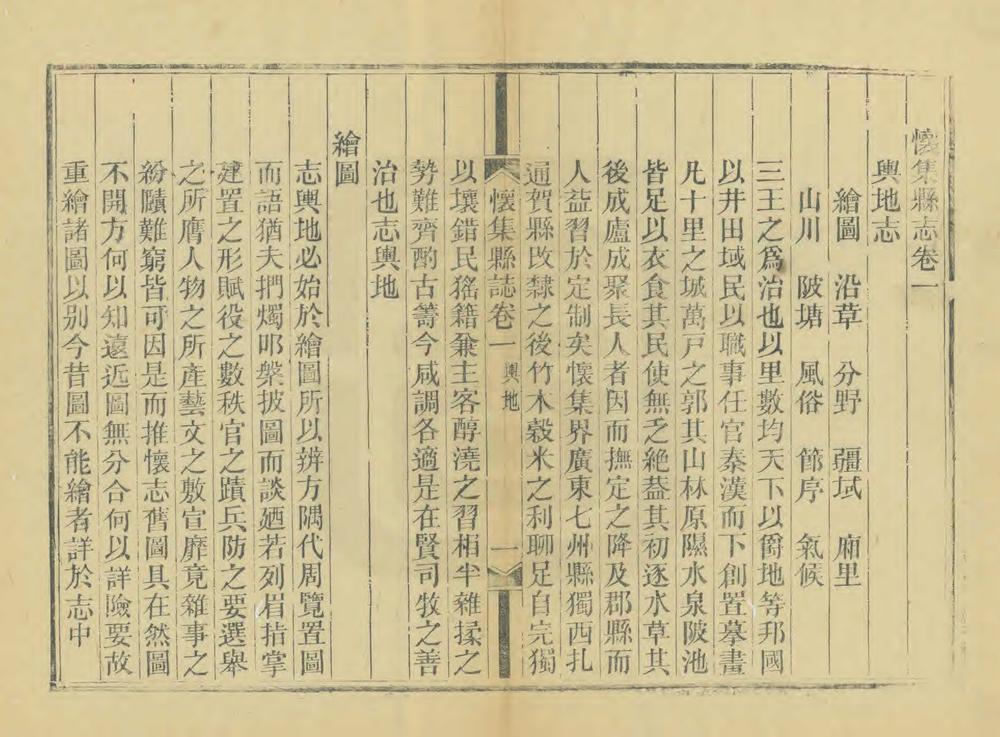 懷集縣志卷一
輿地志
繪圖 沿革 分野 疆域 廂里
山川 陂塘 風俗 節序 氣候
三王之爲治也以里數均天下以爵地等邦國
以井田域民以職事任官秦漢而下創置摹畫
凡十里之城萬戸之郭其山林原隰水泉陂池
皆足以衣食其民使無乏絶葢其初逐水草其
後成廬成聚長人者因而撫定之降及郡縣而
人益習於定制矣懷集界廣東七州縣獨西扎
通賀縣攺隸之後竹木穀米之利聊足自完獨
懷集縣誌卷一 輿地 一
以壤錯民猺籍兼主客醇澆之習相半雜揉之
勢難齊酌古籌今咸調各適是在賢司牧之善
治也志輿地
繪圖
志輿地必始於繪圖所以辨方隅代周覽置圖
而語猶夫捫燭叩槃披圖而談廼若列眉指掌
建置之形賦役之數秩官之蹟兵防之要選舉
之所膺人物之所產藝文之敷宣靡竟雜事之
紛賾難窮皆可因是而推懷志舊圖具在然圖
不開方何以知遠近圖無分合何以詳險要故
重繪諸圖以别今昔圖不能繪者詳於志中